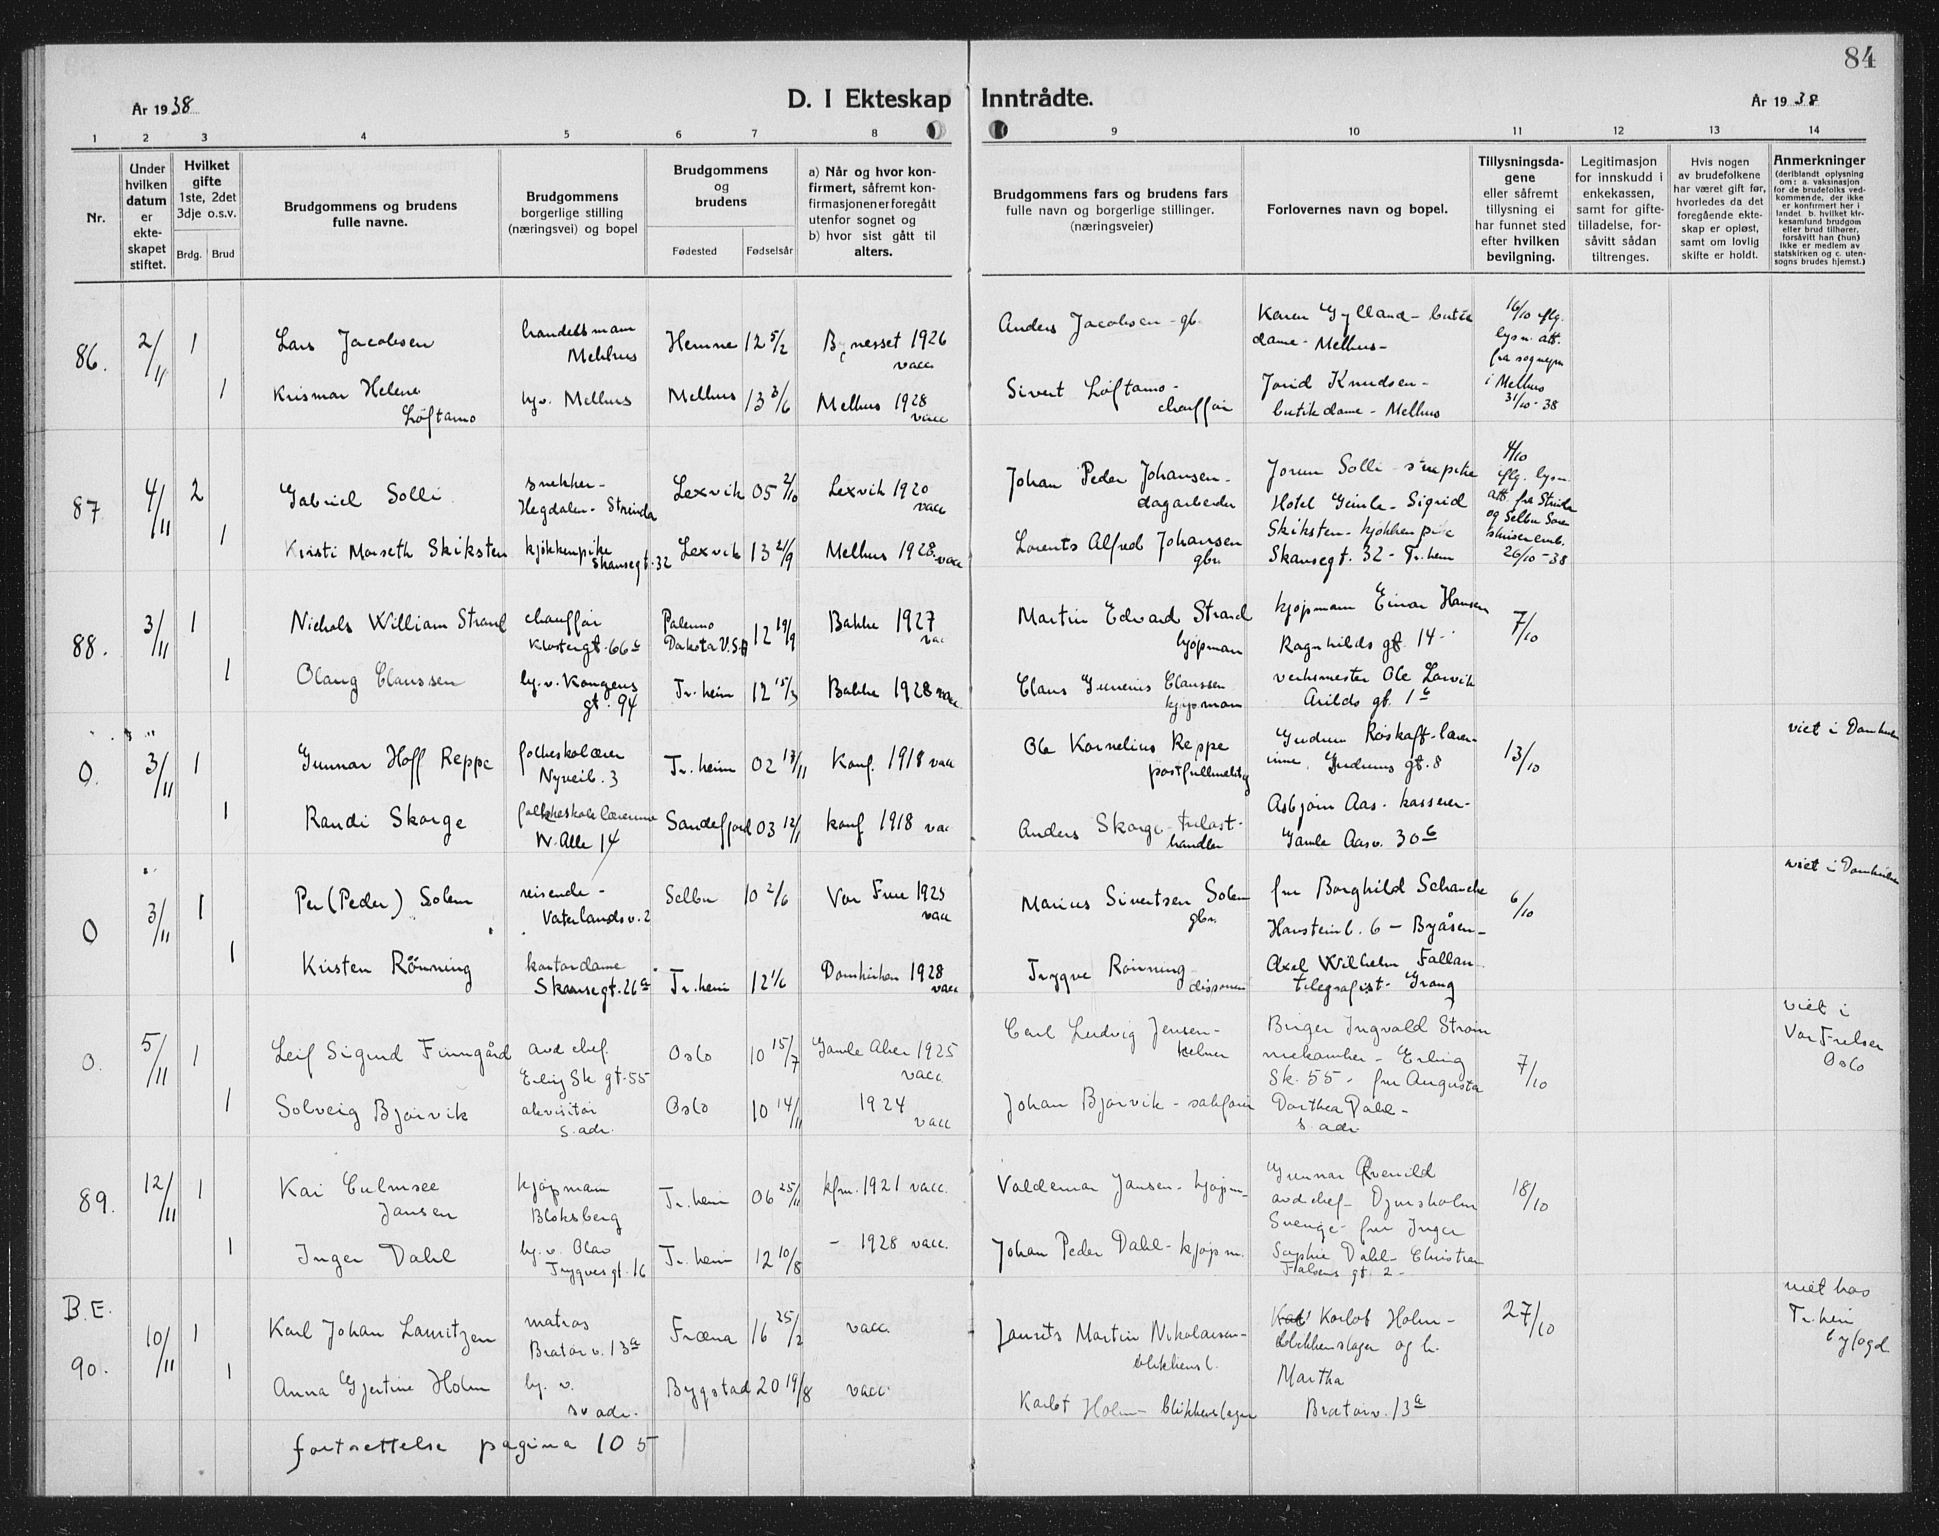 84
År 1938
D. I Ekteskap Inntrådte.
År 1938
1 2 3 4 5 6 7 8 9 10 11 12 13 14
Nr.
Under hvilken datum er ekte-skapet stiftet.
Hvilket gifte 1ste, 2det 3dje o.s.v.
Brdg. Brud
Brudgommens og brudens fulle navne.
Brudgommens borgerlige stilling (næringsvei) og bopel
Brudgommens og brudens
Fødested Fødselsår
a) Når og hvor kon-firmert, såfremt kon-firmasjonen er foregått utenfor sognet og b) hvor sist gått til alters.
Brudgommens fars og brudens fars fulle navn og borgerlige stillinger. (næringsveier)
Forlovernes navn og bopel.
Tillysningsda-gene eller såfremt tillysning ei har funnet sted efter hvilken bevilgning.
Legitimasjon for innskudd i enkekassen, samt for gifte-tilladelse, for-såvitt sådan tiltrenges.
Hvis nogen av brudefolkene har været gift før, hvorledes da det foregående ekte-skap er opløst, samt om lovlig skifte er holdt.
Anmerkninger (deriblandt oplysning om: a. vaksinasjon for de brudefolks ved-kommende, der ikke er konfirmert her i landet. b. hvilket kir-kesamfund brudgom eller brud tilhører, forsåvitt han (hun) ikke er medlem av statskirken og c. uten-sogns brudes hjemst.)
86. 2/11 1 Lars Jacobsen handelsmann Melhus Hemne 12 5/2 Bynesset 1926 vacc. Anders Jacobsen - gb. Karen Gylland - butik dame - Melhus - 16/10 iflg. lysn. att. fra sognepr
1 Krismar Helene Løftamo hj.v. Melhus Melhus 13 3/6 Melhus 1928 vacc Sivert Løftamo - chauffør Jorid Knudsen - butikdame - Melhus i Melhus 31/10 - 38
87 4/11 2 Gabriel Solli snekker - Hegdalen - Strinda Lexvik 05 2/10 Lexvik 1920 vacc Johan Peder Johansen - dagarbeider Jorun Solli - stuepike Hotel Gimle - Sigrid 4/10 iflg. lysn. att. fra Strinda
1 Kristi Morseth Skiksten kjøkkenpike Skansegt. 32 Lexvik 13 21/9 Melhus 1928 vacc Lorents Alfred Johansen gbr. Skiksten - kjøkkenpike Skansegt. 32 - Tr.heim og Selbu Soren skriveremb. 26/10 - 38
88. 3/11 1 Nichols William Strand chauffør Klostergt. 66a Palermo Dakota U.S.A 12 19/9 Bakke 1927 vac Martin Edvard Strand kjøpman kjøpmann Einar Hansen Ragnhilds gt. 14 - 7/10
1 Olaug Claussen hj.v. Kongens gt. 94 Tr.heim 12 15/3 Bakke 1928 vacc Claus Gunerius Claussen kjøpmann verksmester Ole Larvik Arilds gt. 1b
0. 3/11 1 Gunnar Hoff Reppe folkeskolærer Nyveib. 3 Tr.heim 02 13/11 Konf. 1918 vacc Ole Kornelius Reppe postfullmektig Gudrun Roskaft - lærer-inne, Gudruns gt. 8 13/10 viet i Domkirken
1 Randi Skorge folkeskolelærerinne N. Alle 14 Sandefjord 03 12/1 konf 1918 vac Anders Skorge trelast-handler Asbjørn Aas - kasserer - Gamle Aasv. 30b
0 3/11 1 Per (Peder) Solem reisende - Vaterlandsv. 2 Selbu 10 2/6 Vor Frue 1925 vacc Marius Sivertsen Solem gbr. fru Borghild Schancke Hansteinb. 6 - Byåsen - 6/10 viet i Domkirken
1 Kristen Rönning kontordame Skansegt. 26a Tr.heim 12 1/6 Domkirken 1928 vacc Trygve Rönning disponent Axel Wilhelm Fallan telegrafist - Grong
0. 5/11 1 Leif Sigurd Finngård avd chef. Erling Sk gt. 55 Oslo 10 15/7 Gamle Aker 1925 vacc. Carl Ludvig Jensen - kelner Birger Ingvald Strøm mekaniker - Erling Sk. 55 - fru Augusta 7/10 viet i Vor Frelser Oslo
1 Solveig Bjørvik akvisitør s. adr. Oslo 10 14/11 1924 vacc Johan Bjørvik - sakfører Dorthea Dahl - s. adr
89. 12/11 1 Kai Culmsee Jansen kjøpmann Bloksberg Tr.heim 06 25/11 kfm. 1921 vacc. Valdemar Jansen - kjøpm. Gunnar Qvenild avdchef - Djursholm Sverige - fru Inger 18/10
1 Inger Dahl hj. v. Olav Trygves gt. 16 Tr.heim 12 10/8 - 1928 vacc. Johan Peder Dahl - kjøpm. Sophie Dahl - Christian Falsens gt. 2 -
B.E. 90. 10/11 1 Karl Johan Lauritzen matros Bratørv. 13a Fræna 16 25/2 vacc. Laurits Martin Nikolaisen - blikkensl. Karlot Holm - blikkenslager og h. 27/10 viet hos Tr.heim byfogd
1 Anna Gjertine Holm hj. v. sv adr. Bygstad 20 19/8 vacc. Karlot Holm - blikkenslager Martha Bratørv. 13a
fortsettelse pagina 105